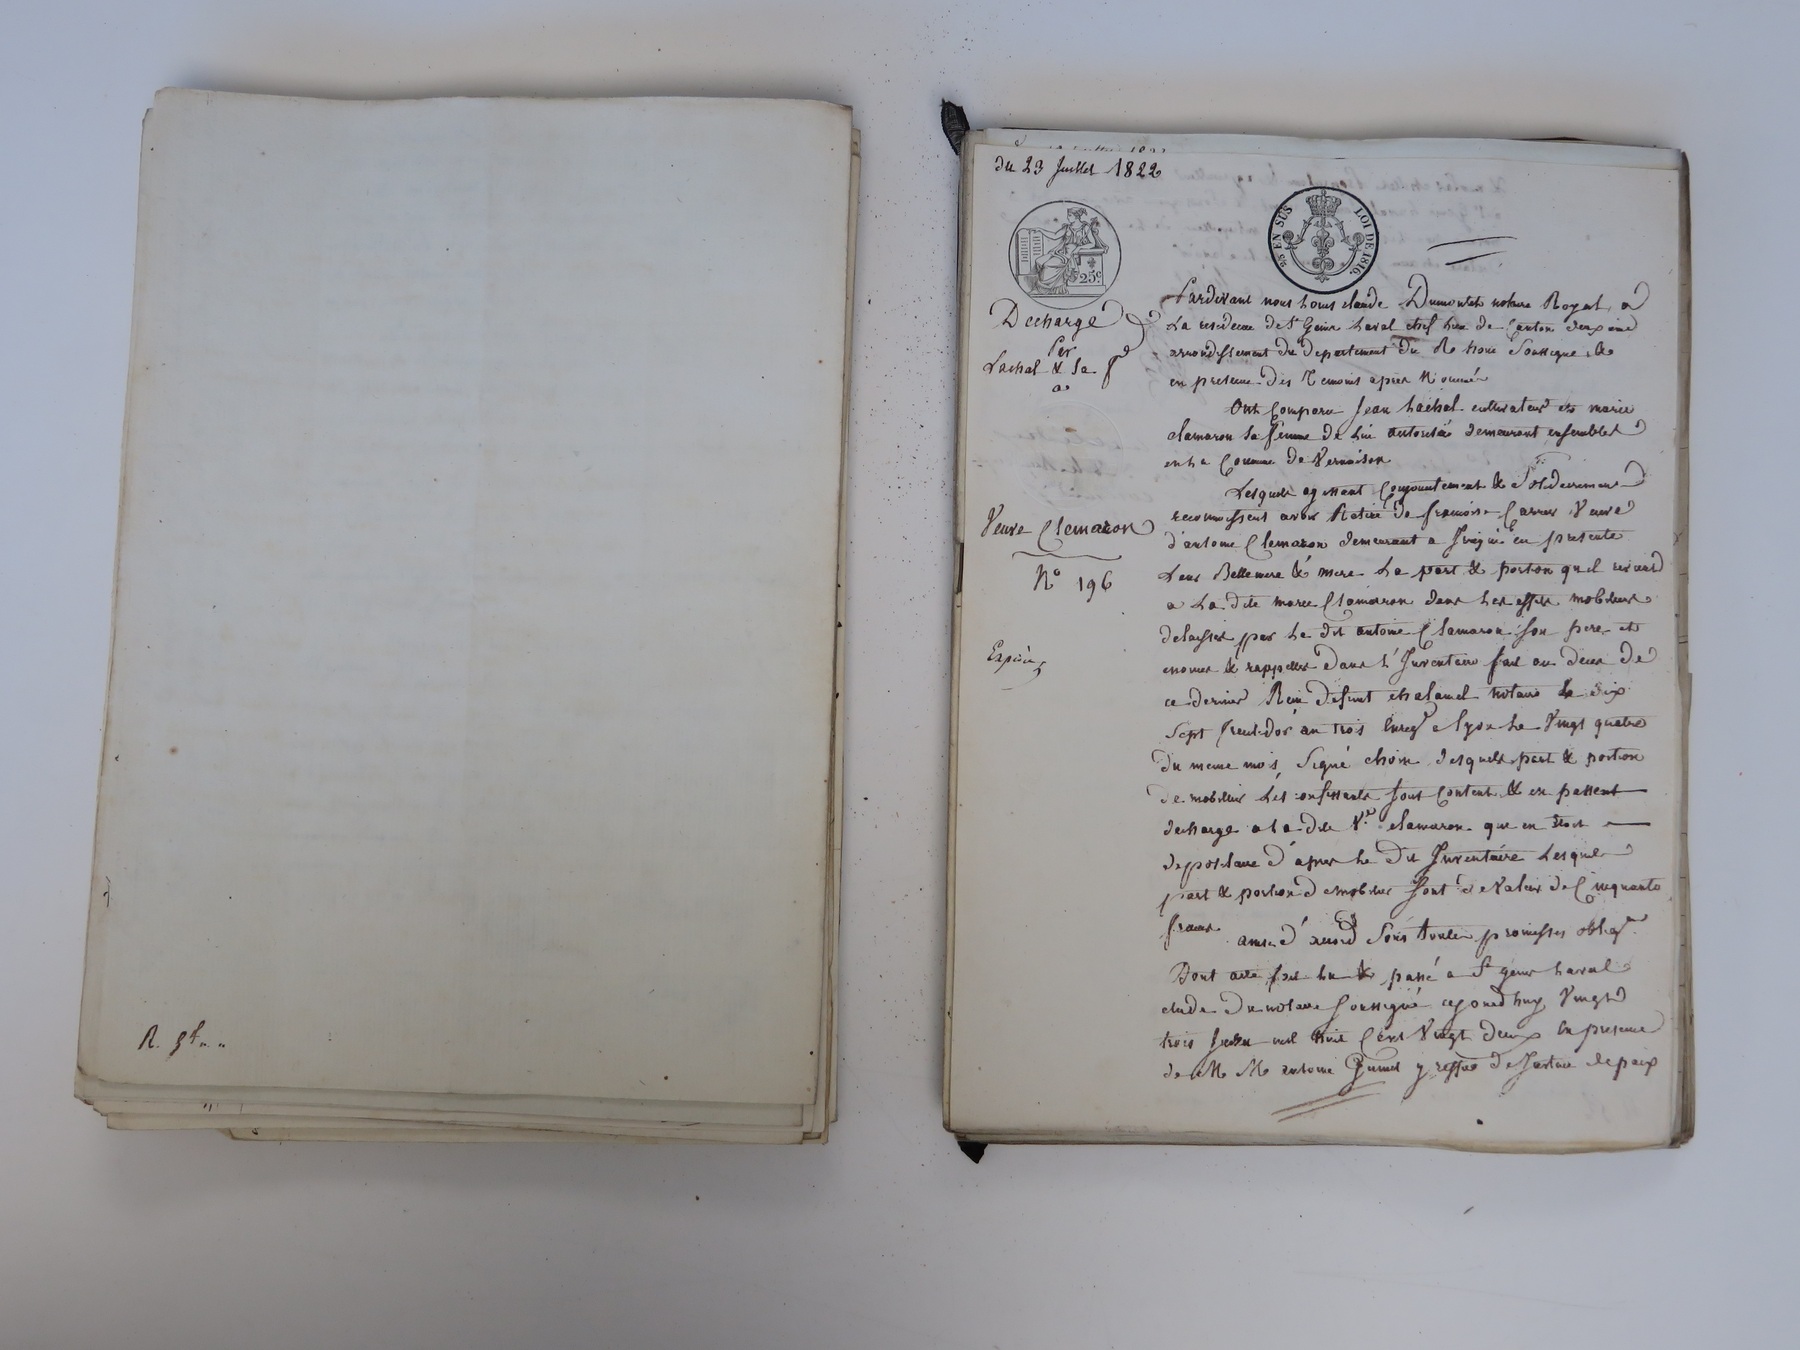 R. 5f. "
du 23 Juillet 1822
25 EN SUS LOI DE 1816.
25c.
Decharge
Per
Lachal & Sa f.e
a
Veuve Clemaron
N° 196
Expiée
Pardevant nous Louis claude Dumontet notaire Royal, a
La residence de St Genis Laval chef Lieu de Canton deuxieme
arrondissement du departement du Rhone Soussigné &
en presence des Temoins apres Nommés
Ont Comparu Jean Lachal cultivateur et marie
clamaron Sa femme de Lui autorisée demeurant ensembles
en La Commune de Vernaison
Lesquels agissant Conjointement & Solidairement
reconnoissent avoir Retiré de francoise Carron Veuve
d'antoine Clemaron demeurant a Irigni en presente
Leur Bellemere & mere La part & portion qu'il revient
a La dite marie Clamaron dans Les effets mobiliers
delaissés par Le dit antoine Clamaron Son pere et
enoncés & rappellés dans L'Inventaire fait au deces de
ce dernier Recu defunt chalamel notaire Le dix
Sept fructidor an trois Enreg.é a lyon Le Vingt quatre
du meme mois, Signé choin desquels part & portion
de mobilier Les confessants Sont Content & en passent
decharge a la dite V.e clamaron que en etoit
depositaire d'apres Le dit Inventaire Lesquels
part & portion de mobilier Sont de Valeur de Cinquante
francs
ainsi d'accord Sous toutes promesses oblig.
Dont acte fait Lu & passé a St genis Laval
etude du notaire Soussigné cejourd'huy Vingt
trois Juillet mil huit Cent Vingt deux En presence
de M M antoine Guinet greffier de Justice de paix